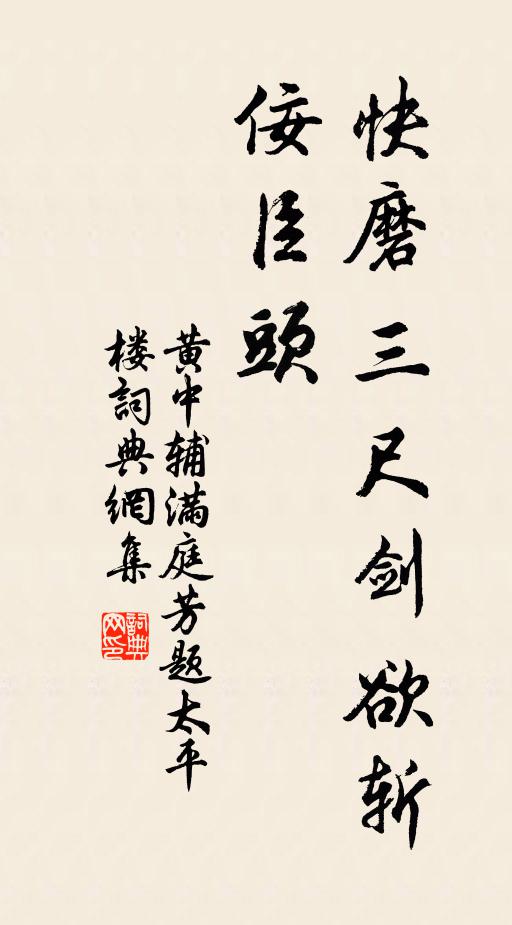 快磨三尺剑欲斩
佞臣頭
黄中辅满庭芳题太平
楼詞典網集
詞典
网印